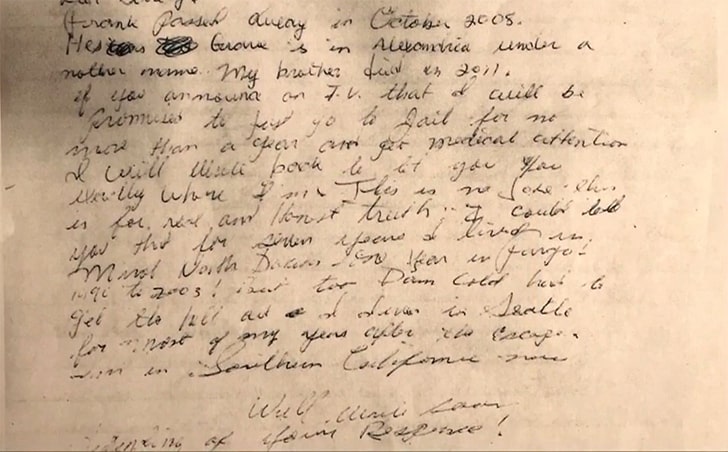 Frank Passed away in October 2008.
His Grave is in Alexandria under a
nother name. My brother died in 2011.
if you announce on T.V. that I will be
Promised to just go to Jail for no
more than a year and get medical attention
I will write back to let you
exactly where I am. This is no Joke this
is for real and Honest truth. I could tell
you that for seven years I lived in
Minot North Dakota one Year in Fargo!
to 2003!
get the hell I lived in Seattle
for most of my years after the escape.
in Southern California now
Will write soon
of Your Response!